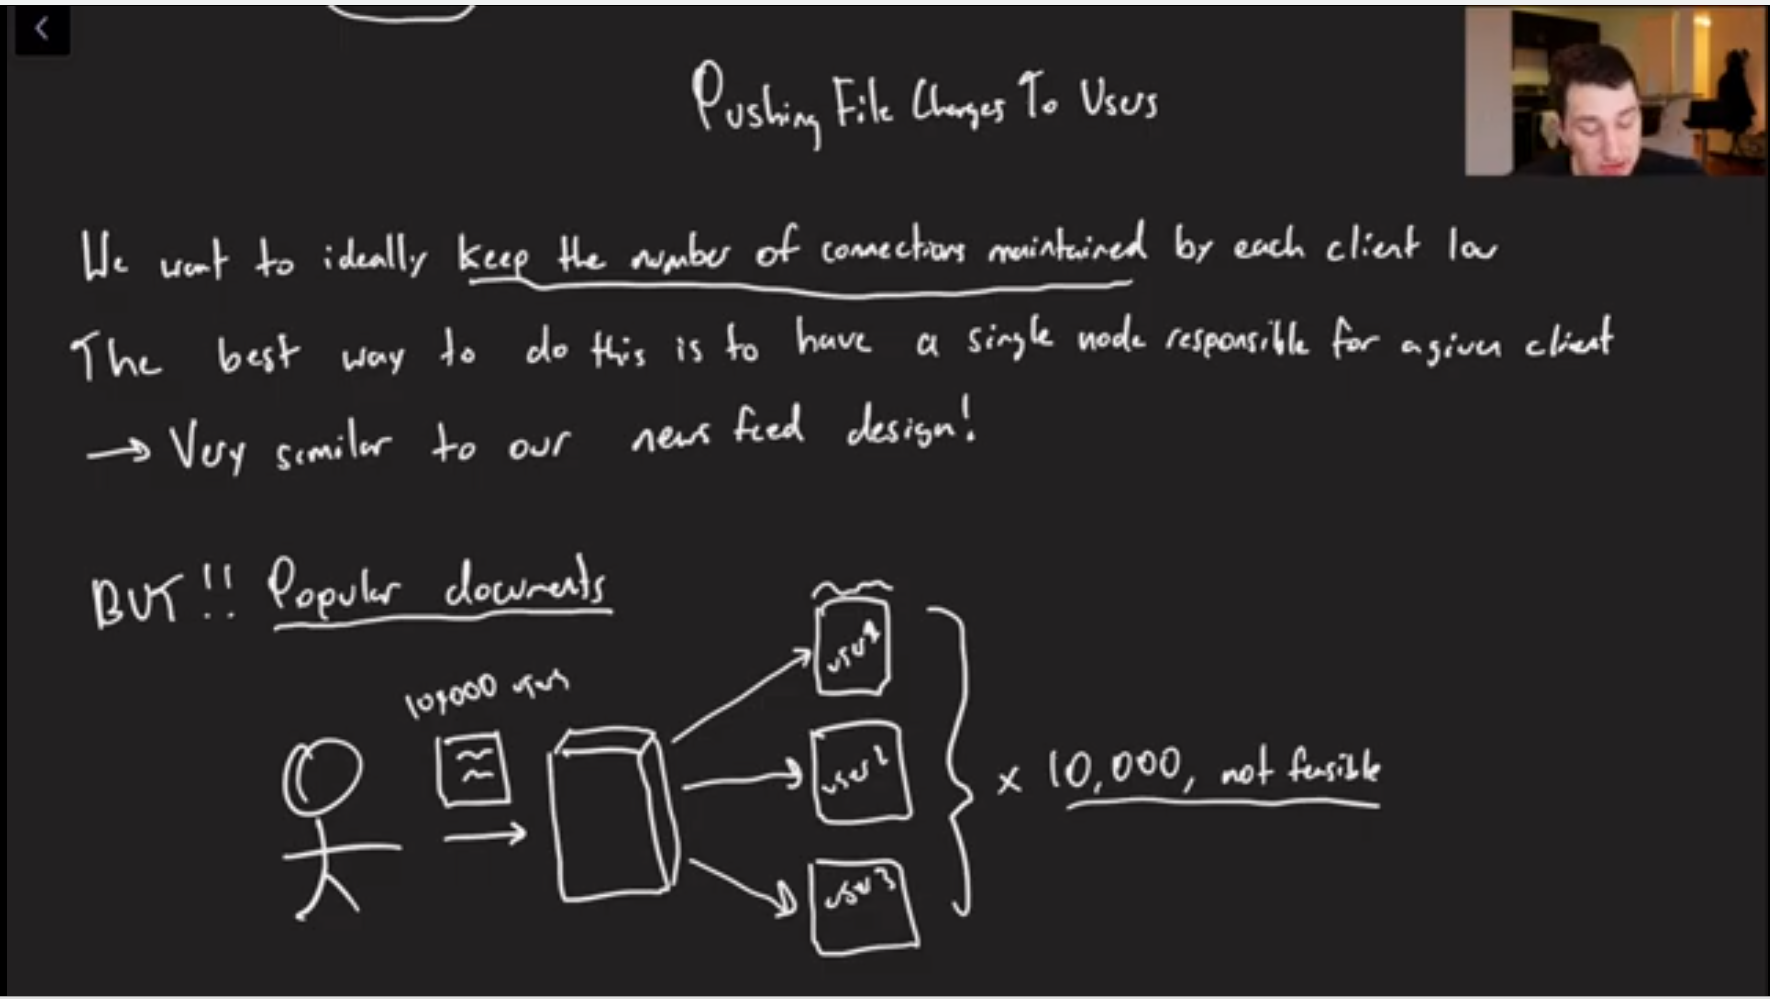 Pushing File Changes To Users
We want to ideally keep the number of connections maintained by each client low
The best way to do this is to have a single node responsible for a given client
→ Very similar to our news feed design!
BUT!! Popular documents
10,000 users
user 1
user 2
user 3
x 10,000, not feasible